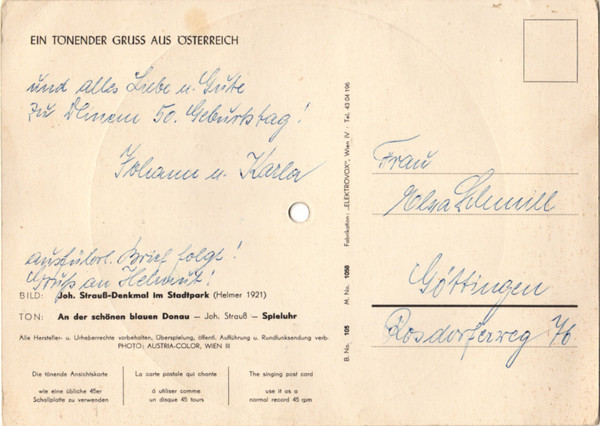 EIN TÖNENDER GRUSS AUS ÖSTERREICH
und alles Liebe u. Gute
zu Deinem 50. Geburtstag!
Johann u. Karla
ausführl. Brief folgt!
Gruß an Helmut!
BILD: Joh. Strauß-Denkmal im Stadtpark (Helmer 1921)
TON: An der schönen blauen Donau – Joh. Strauß – Spieluhr
Alle Hersteller- u. Urheberrechte vorbehalten, Überspielung, öffentl. Aufführung u. Rundfunksendung verb.
PHOTO: AUSTRIA-COLOR, WIEN III
Die tönende Ansichtskarte
wie eine übliche 45er
Schallplatte zu verwenden
La carte postale qui chante
à utiliser comme
un disque 45 tours
The singing post card
use it as a
normal record 45 rpm
B. No. 105 M. No. 1058 Fabrikation: „ELEKTROVOX", Wien IV - Tel. 43 04 196
Frau
Elsa Schmill
Göttingen
Rosdorferweg 76